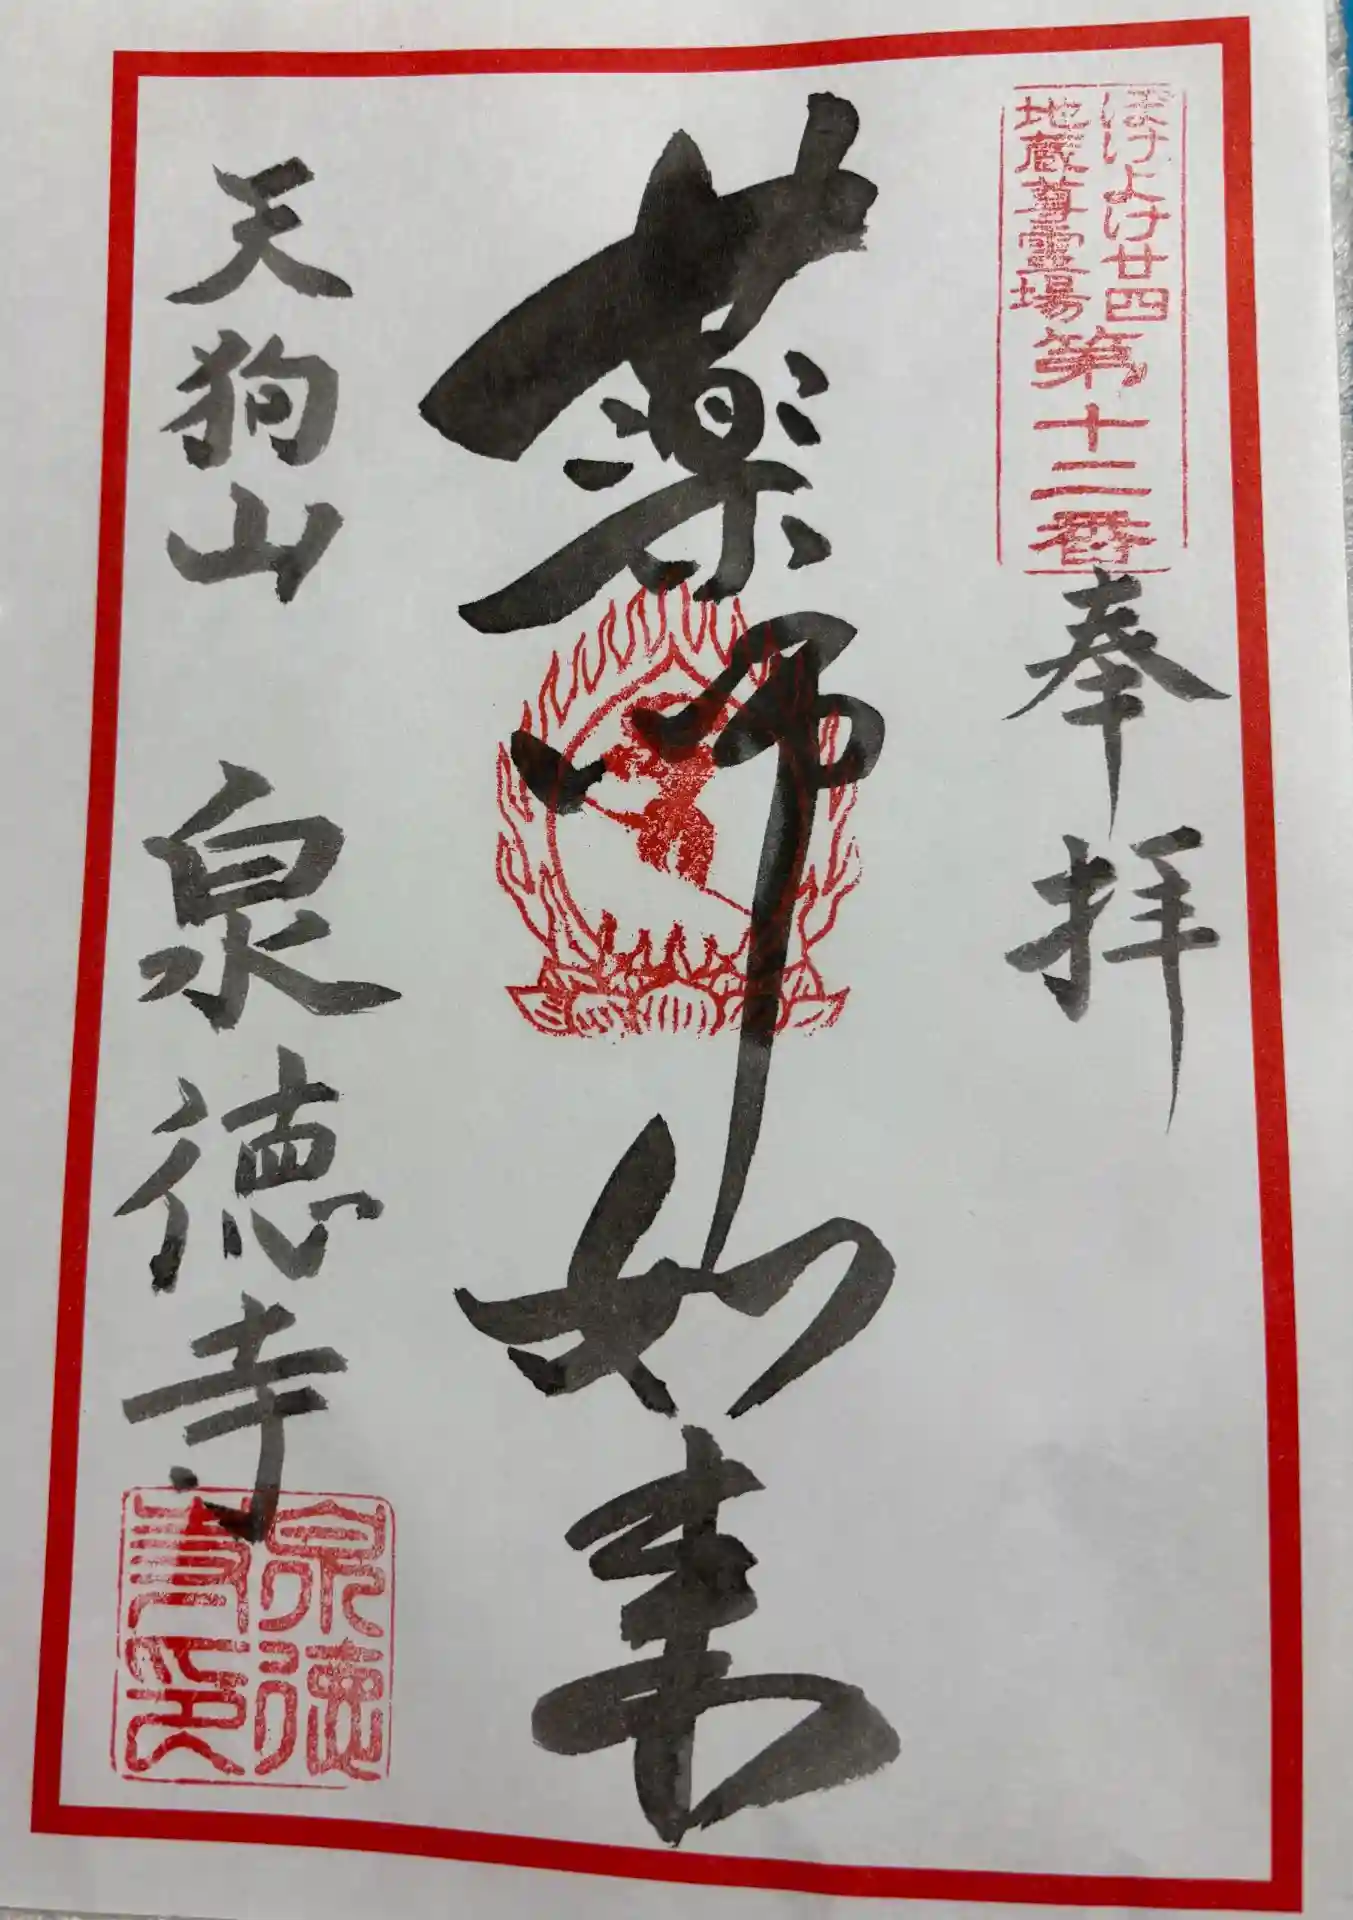 ぼけよけ廿四
地蔵尊霊場
第十二番
奉拝
薬師如来
天狗山 泉徳寺
泉徳
寺印